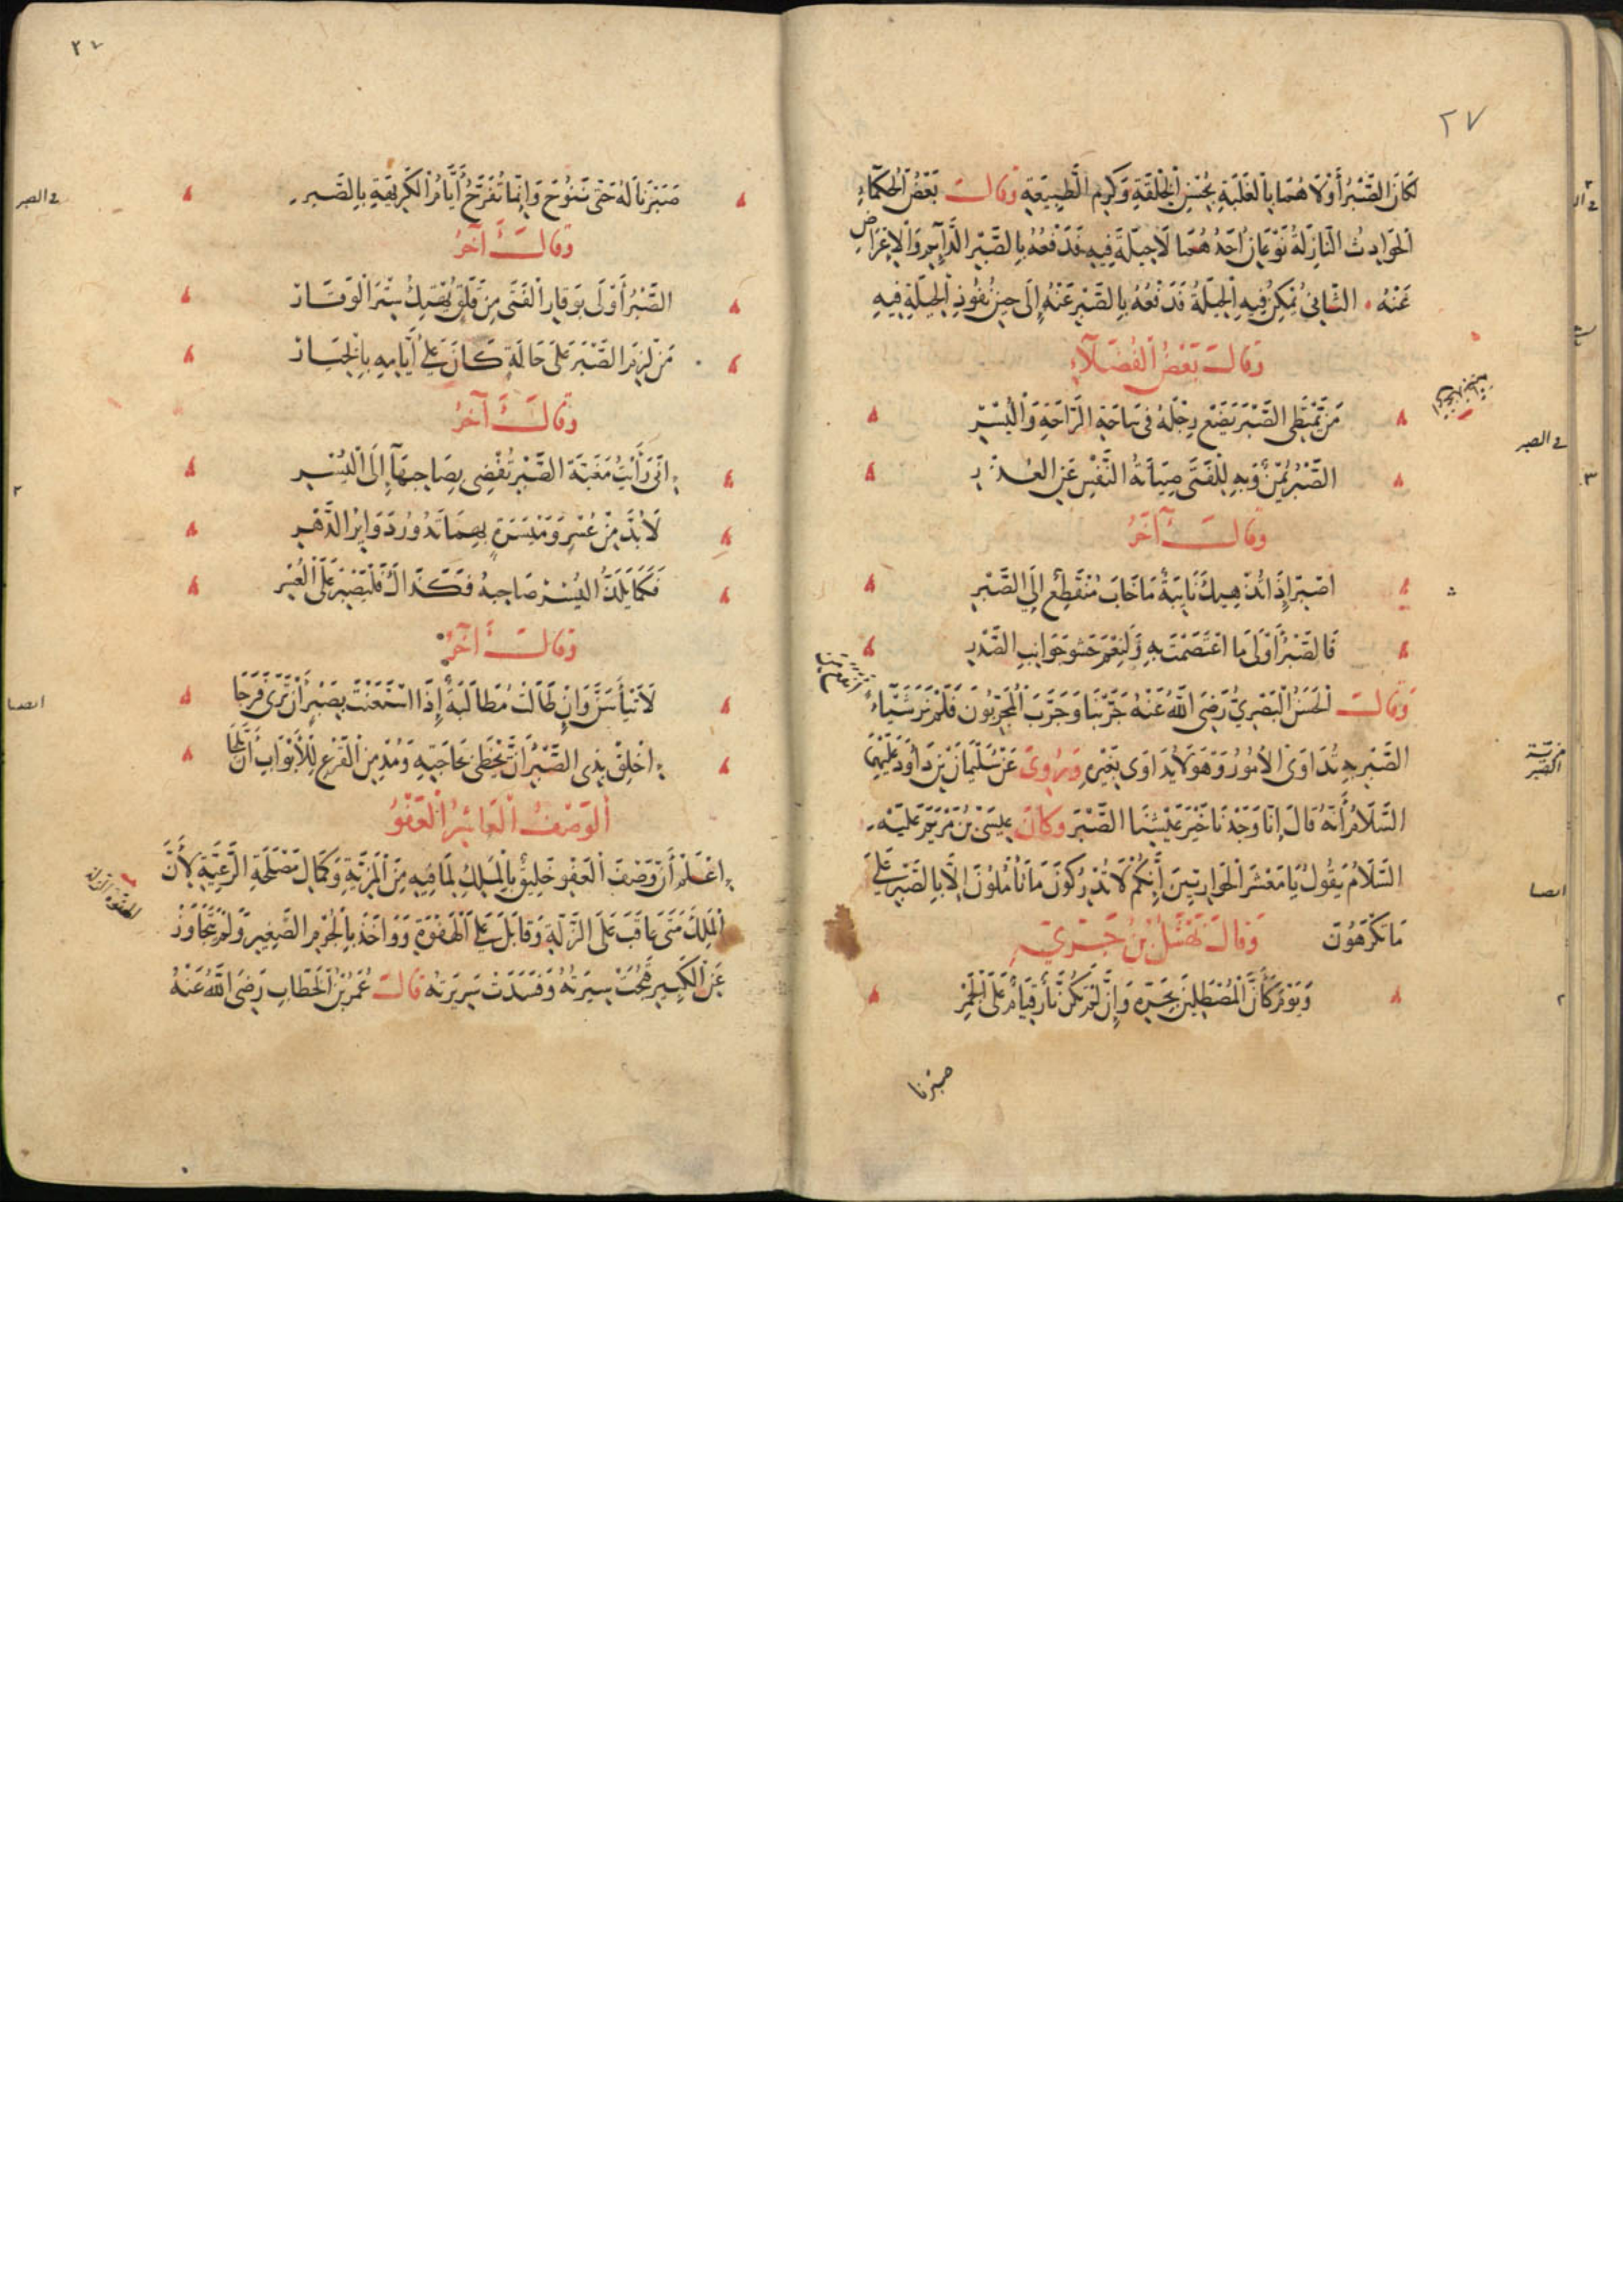 ٢٧
لَكَانَ الصَّبْرُ أَوْلَاهُمَا بِالْغَلَبَةِ بِحُسْنِ الْخِلْقَةِ وَكَرَمِ الطَّبِيعَةِ وَقَالَ بَعْضُ الْحُكَمَاءِ
الْحَوَادِثُ النَّازِلَةُ نَوْعَانِ أَحَدُهُمَا لَا حِيلَةَ فِيهِ فَدَفْعُهُ بِالصَّبْرِ الدَّائِمِ وَالْإِعْرَاضِ
عَنْهُ ۰ الثَّانِي يُمْكِنُ فِيهِ الْحِيلَةُ فَدَفْعُهُ بِالصَّبْرِ عَنْهُ إِلَى حِينِ نُفُوذِ الْحِيلَةِ فِيهِ
وَقَالَ بَعْضُ الْفُضَلَاءِ
مَنْ يَمْتَطِي الصَّبْرَ يَضَعْ رِجْلَهُ فِي سَاحَةِ الرَّاحَةِ وَالْيُسْرِ
فى الصبر
الصَّبْرُ يُمْنٌ وَبِهِ لِلْفَتَى صِيَانَةُ النَّفْسِ عَنِ الْعُذْرِ
وَقَالَ آخَرُ
اصْبِرْ إِذَا نَابَتْكَ نَائِبَةٌ مَا خَابَ مُنْقَطِعٌ إِلَى الصَّبْرِ
فَالصَّبْرُ أَوْلَى مَا اعْتَصَمْتَ بِهِ وَلَنِعْمَ حَشْوُ جَوَانِبِ الصَّدْرِ
وَقَالَ الْحَسَنُ الْبَصْرِيُّ رَضِيَ اللَّهُ عَنْهُ جَرَّبْنَا وَجَرَّبَ الْمُجَرِّبُونَ فَلَمْ نَرَ شَيْئًا
الصَّبْرِ بِهِ تُدَاوَى الْأُمُورُ وَهُوَ لَا يُدَاوَى بِغَيْرِهِ وَيُرْوَى عَنْ سُلَيْمَانَ بْنِ دَاوُدَ عَلَيْهِمَا
مزية الصبر
السَّلَامُ أَنَّهُ قَالَ إِنَّا وَجَدْنَا خَيْرَ عَيْشِنَا الصَّبْرَ وَكَانَ عِيسَى بْنُ مَرْيَمَ عَلَيْهِ
السَّلَامُ يَقُولُ يَا مَعْشَرَ الْحَوَارِيِّينَ إِنَّكُمْ لَا تُدْرِكُونَ مَا تَأْمُلُونَ إِلَّا بِالصَّبْرِ عَلَى
ايضا
مَا تَكْرَهُونَ وَقَالَ نَهْشَلُ بْنُ حَرِّيٍّ
وَيَوْمٍ كَأَنَّ الْمُصْطَلِينَ بِحَرِّهِ وَإِنْ لَمْ تَكُنْ نَارٌ قِيَامٌ عَلَى الْجَمْرِ
صبرنا
٢٧
صَبَرْنَا لَهُ حَتَّى يَبُوخَ وَإِنَّمَا تُفَرَّجُ أَيَّامُ الْكَرِيهَةِ بِالصَّبْرِ
فى الصبر
وَقَالَ آخَرُ
الصَّبْرُ أَوْلَى بِوَقَارِ الْفَتَى مِنْ قَلَقٍ يَهْتِكُ سِتْرَ الْوَقَارْ
مَنْ لَزِمَ الصَّبْرَ عَلَى حَالَةٍ كَانَ عَلَى أَيَّامِهِ بِالْخِيَارْ
وَقَالَ آخَرُ
إِنِّي رَأَيْتُ مَغَبَّةَ الصَّبْرِ تُفْضِي بِصَاحِبِهَا إِلَى الْيُسْرِ
لَا بُدَّ مِنْ عُسْرٍ وَمَيْسَرَةٍ بِهِمَا تَدُورُ دَوَائِرُ الدَّهْرِ
فَكَمَا يَلَذُّ الْيُسْرَ صَاحِبُهُ فَكَذَاكَ فَلْيَصْبِرْ عَلَى الْعُسْرِ
وَقَالَ آخَرُ
لَا تَيْأَسَنَّ وَإِنْ طَالَتْ مُطَالَبَةٌ إِذَا اسْتَعَنْتَ بِصَبْرٍ أَنْ تَرَى فَرَجَا
ايضا
أَخْلِقْ بِذِي الصَّبْرِ أَنْ يَحْظَى بِحَاجَتِهِ وَمُدْمِنِ الْقَرْعِ لِلْأَبْوَابِ أَنْ يَلِجَا
الْوَصْفُ الْعَاشِرُ الْعَفْوُ
اعْلَمْ أَنَّ وَصْفَ الْعَفْوِ خَلِيقٌ بِالْمَلِكِ لِمَا فِيهِ مِنَ الْمَزِيَّةِ وَكَمَالِ مَصْلَحَةِ الرَّعِيَّةِ لِأَنَّ
الْمَلِكَ مَتَى عَاقَبَ عَلَى الزَّلَّةِ وَقَابَلَ عَلَى الْهَفْوَةِ وَوَاخَذَ بِالْجُرْمِ الصَّغِيرِ وَلَمْ يَتَجَاوَزْ
عَنِ الْكَبِيرِ قَبُحَتْ سِيرَتُهُ وَفَسَدَتْ سَرِيرَتُهُ قَالَ عُمَرُ بْنُ الْخَطَّابِ رَضِيَ اللَّهُ عَنْهُ